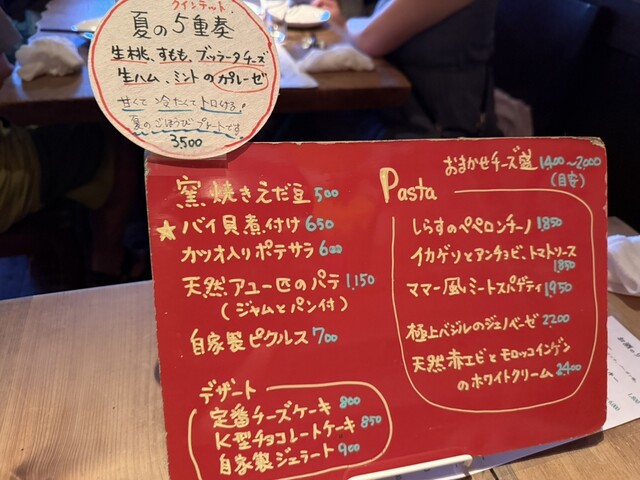 クインテット
夏の5重奏
生桃、すもも、ブッラータチーズ
生ハム、ミントのカプレーゼ
甘くて冷たくてトロける!
夏のごほうびプレートです
3500
窯焼きえだ豆 500
★バイ貝煮付け 650
カツオ入りポテサラ 600
天然アユ一匹のパテ 1,150
(ジャムとパン付)
自家製ピクルス 700
デザート
定番チーズケーキ 800
K型チョコレートケーキ 850
自家製ジェラート 900
おまかせチーズ盛 1400~2000
(目安)
Pasta
しらすのペペロンチーノ 1850
イカゲソとアンチョビ、トマトソース
1850
ママー風ミートスパゲティ 1950
極上バジルのジェノベーゼ 2200
天然赤エビとモロッコインゲン
のホワイトクリーム 2400